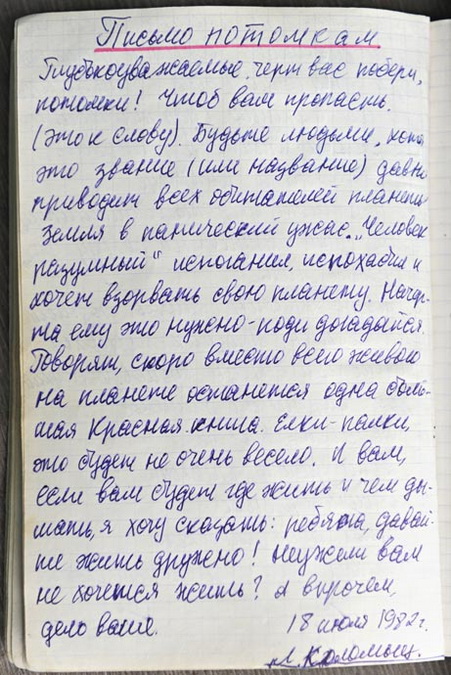 Письмо потомкам
Глубокоуважаемые, черт вас побери,
потомки! Чтоб вам пропасть.
(это к слову). Будьте людьми, хотя
это звание (или название) давно
приводит всех обитателей планеты
Земля в панический ужас. „Человек
разумный" испоганил, испохабил и
хочет взорвать свою планету. Начер-
та ему это нужно - поди догадайся.
Говорят, скоро вместо всего живого
на планете останется одна боль-
шая Красная книга. Елки-палки,
это будет не очень весело. И вам,
если вам будет где жить и чем ды-
шать, я хочу сказать: ребята, давай-
те жить дружно! Неужели вам
не хочется жить? А впрочем,
дело ваше.
18 июля 1982 г.
Л. Коломыц.